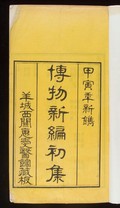 甲寅年新鐫
博物新編初集
羊城西關惠愛醫館藏板